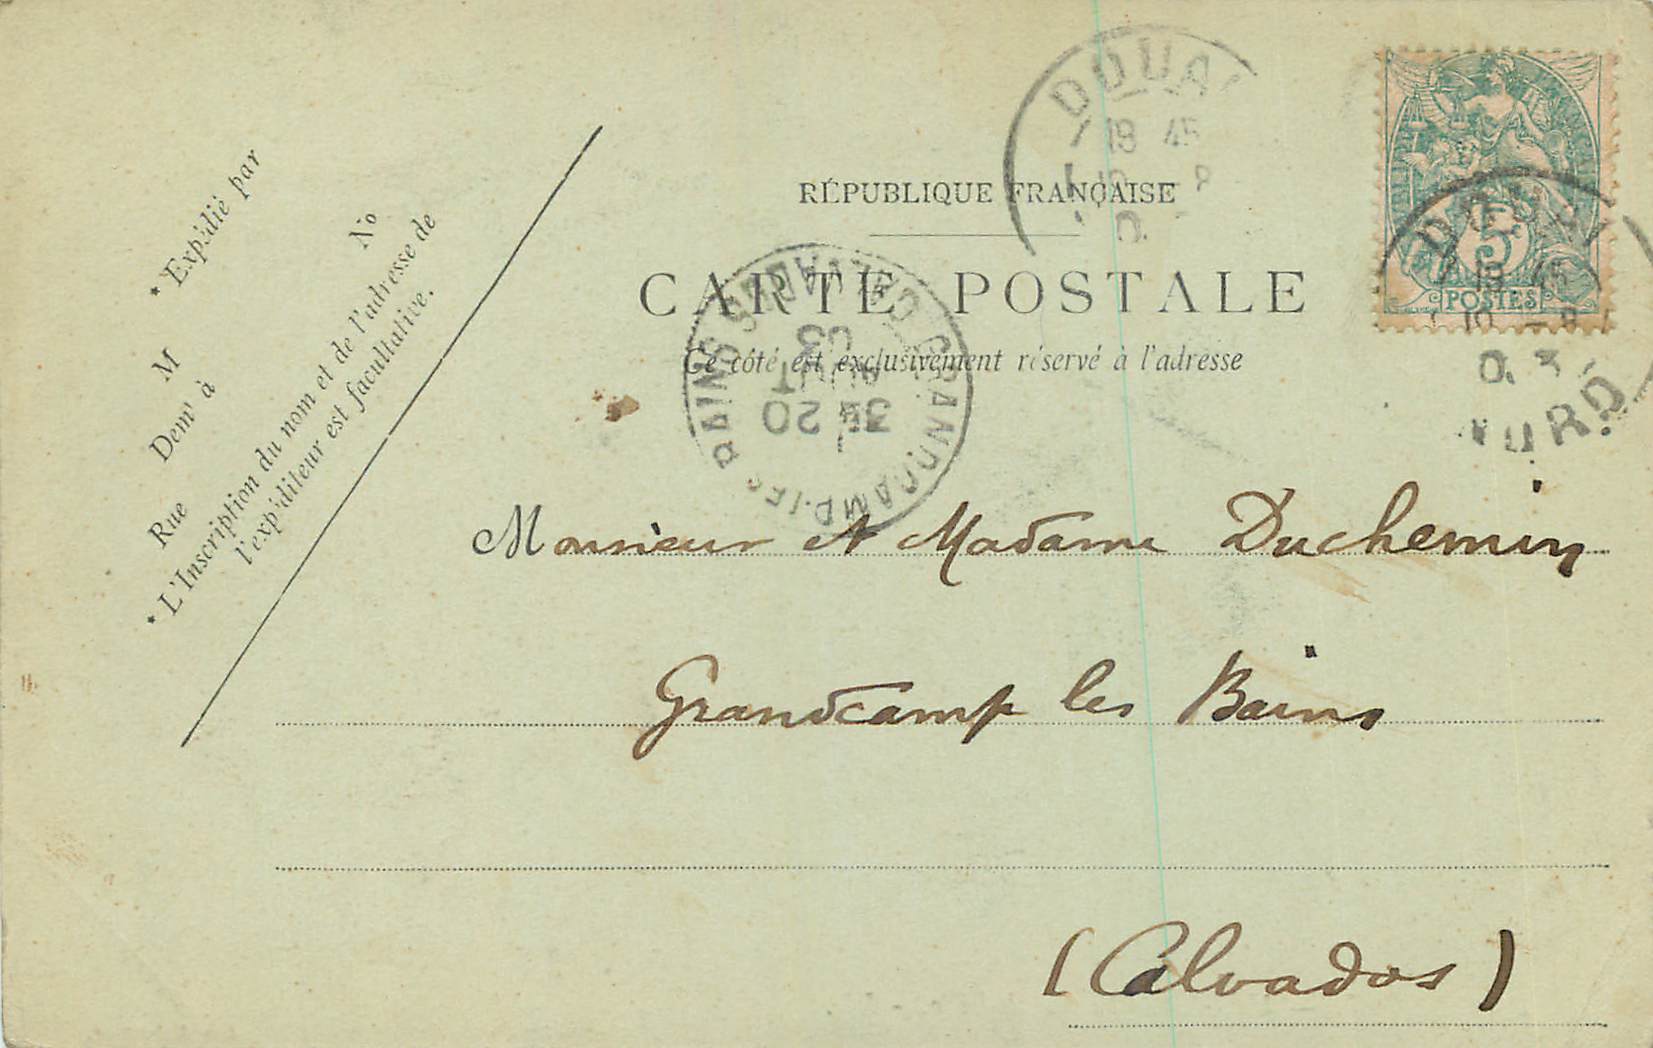 RÉPUBLIQUE FRANÇAISE
CARTE POSTALE
Ce côté est exclusivement réservé à l'adresse
* Expédié par
M
Demt à
Rue
No
* L'Inscription du nom et de l'adresse de
l'expéditeur est facultative.
DOUAI
18 45
10 - 8
0.
5
POSTES
DOUAI
18 45
10 - 8
0. 3
NORD
GRANDCAMP-LES-BAINS CALVADOS
3E 20
AOUT
03
Monsieur et Madame Duchemin
Grandcamp les Bains
(Calvados)